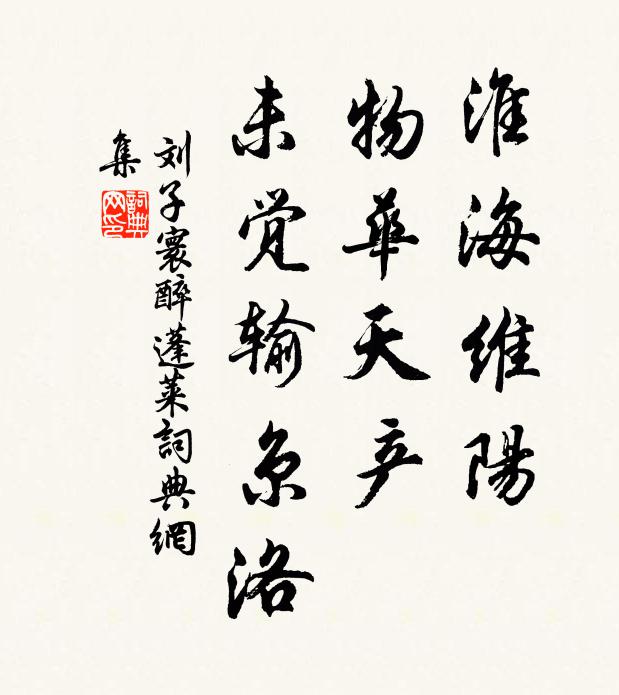 淮海维陽
物華天产
未觉输京洛
刘子寰醉蓬莱詞典網
集
詞典
网印